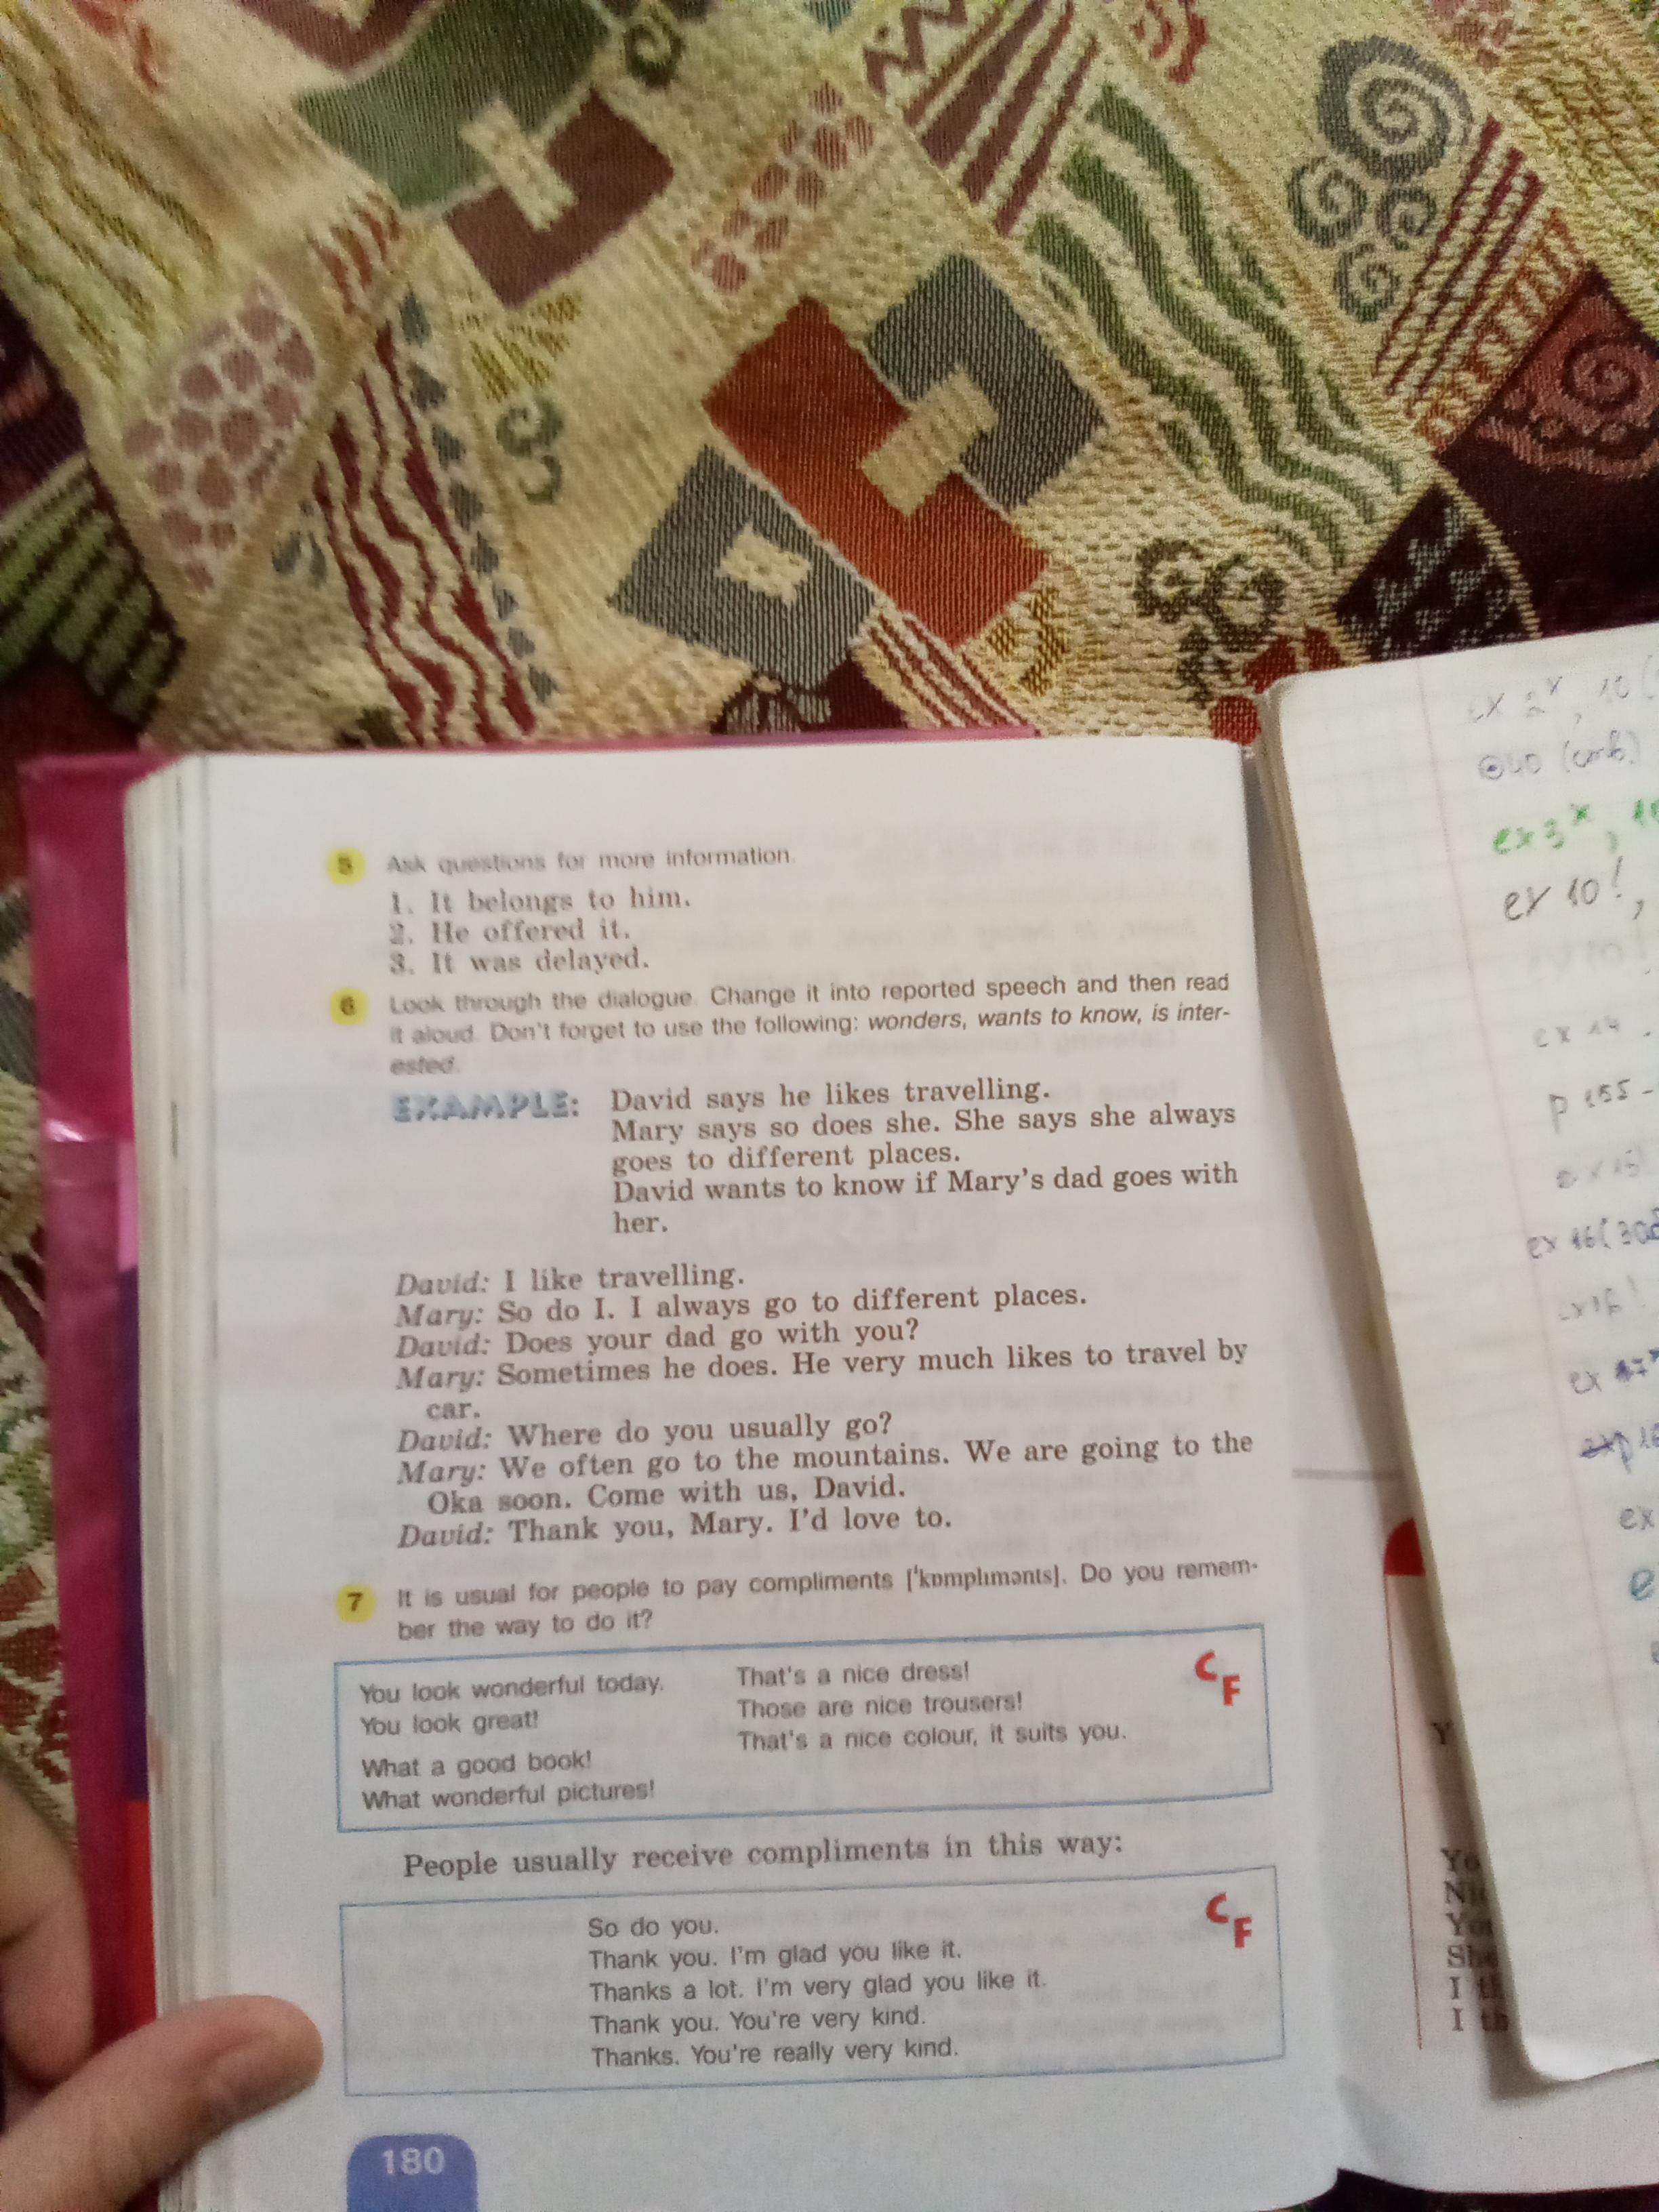 5 Ask questions for more information.
1. It belongs to him.
2. He offered it.
3. It was delayed.
6 Look through the dialogue. Change it into reported speech and then read
it aloud. Don't forget to use the following: wonders, wants to know, is inter-
ested.
EXAMPLE: David says he likes travelling.
Mary says so does she. She says she always
goes to different places.
David wants to know if Mary's dad goes with
her.
David: I like travelling.
Mary: So do I. I always go to different places.
David: Does your dad go with you?
Mary: Sometimes he does. He very much likes to travel by
car.
David: Where do you usually go?
Mary: We often go to the mountains. We are going to the
Oka soon. Come with us, David.
David: Thank you, Mary. I'd love to.
7 It is usual for people to pay compliments ['kɒmplɪmənts]. Do you remem-
ber the way to do it?
You look wonderful today.
You look great!
What a good book!
What wonderful pictures!
That's a nice dress!
Those are nice trousers!
That's a nice colour, it suits you.
CF
People usually receive compliments in this way:
So do you.
Thank you. I'm glad you like it.
Thanks a lot. I'm very glad you like it.
Thank you. You're very kind.
Thanks. You're really very kind.
CF
180
ex 3ˣ,
ex 10!,
ex 14
p 155
ex
I
I